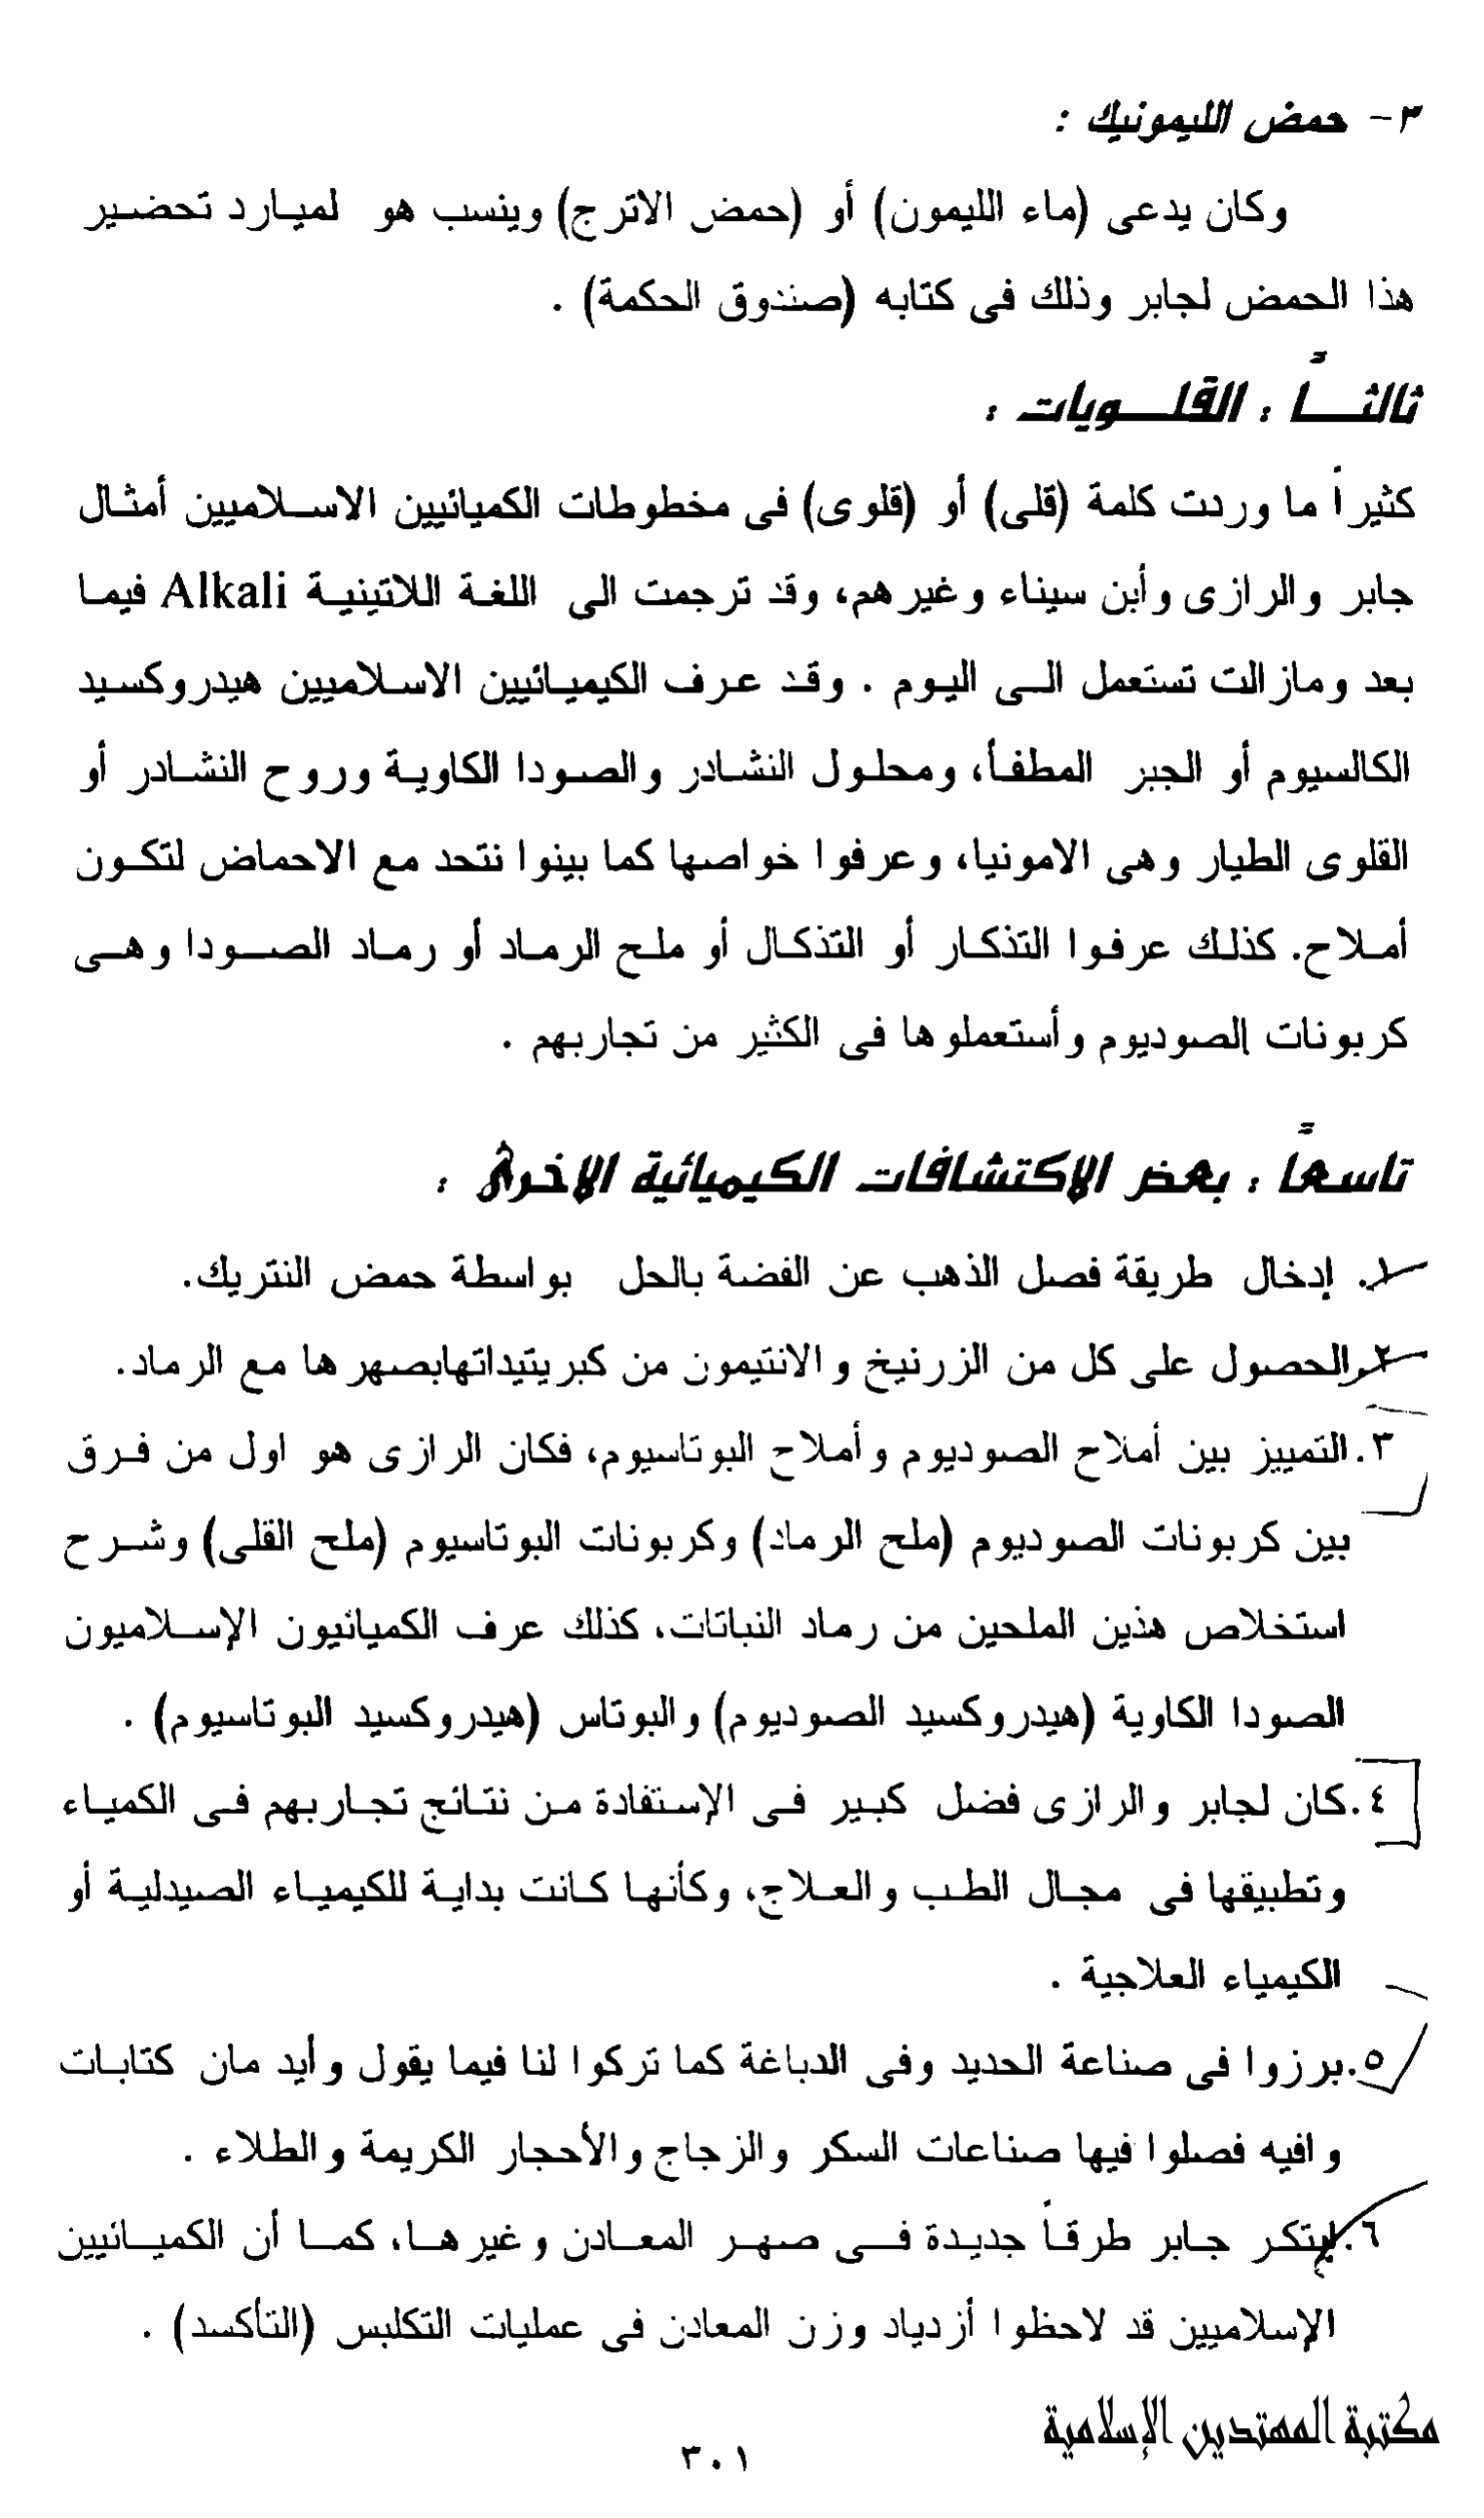 ٣- حمض الليمونيك :
وكان يدعى (ماء الليمون) أو (حمض الاترج) وينسب هو لميارد تحضير
هذا الحمض لجابر وذلك فى كتابه (صندوق الحكمة) .
ثالثاً : القلويات :
كثيراً ما وردت كلمة (قلى) أو (قلوى) فى مخطوطات الكميائيين الاسلاميين أمثال
جابر والرازى وأبن سيناء وغيرهم، وقد ترجمت الى اللغة اللاتينية Alkali فيما
بعد ومازالت تستعمل الى اليوم . وقد عرف الكيميائيين الاسلاميين هيدروكسيد
الكالسيوم أو الجبر المطفأ، ومحلول النشادر والصودا الكاوية وروح النشادر أو
القلوى الطيار وهى الامونيا، وعرفوا خواصها كما بينوا نتحد مع الاحماض لتكون
أملاح. كذلك عرفوا التذكار أو التذكال أو ملح الرماد أو رماد الصودا وهى
كربونات الصوديوم وأستعملوها فى الكثير من تجاربهم .
تاسعاً : بعض الإكتشافات الكيميائية الإخرى :
١. إدخال طريقة فصل الذهب عن الفضة بالحل بواسطة حمض النتريك.
٢. الحصول على كل من الزرنيخ والانتيمون من كبريتيداتهابصهرها مع الرماد.
٣. التمييز بين أملاح الصوديوم وأملاح البوتاسيوم، فكان الرازى هو اول من فرق
بين كربونات الصوديوم (ملح الرماد) وكربونات البوتاسيوم (ملح القلى) وشرح
استخلاص هذين الملحين من رماد النباتات، كذلك عرف الكميائيون الإسلاميون
الصودا الكاوية (هيدروكسيد الصوديوم) والبوتاس (هيدروكسيد البوتاسيوم) .
٤. كان لجابر والرازى فضل كبير فى الإستفادة من نتائج تجاربهم فى الكمياء
وتطبيقها فى مجال الطب والعلاج، وكأنها كانت بداية للكيمياء الصيدلية أو
الكيمياء العلاجية .
٥. برزوا فى صناعة الحديد وفى الدباغة كما تركوا لنا فيما يقول وأيد مان كتابات
وافيه فصلوا فيها صناعات السكر والزجاج والأحجار الكريمة والطلاء .
٦. إبتكر جابر طرقاً جديدة فى صهر المعادن وغيرها، كما أن الكميائيين
الإسلاميين قد لاحظوا أزدياد وزن المعادن فى عمليات التكلبس (التأكسد) .
مكتبة المهتدين الإسلامية
٣٠١